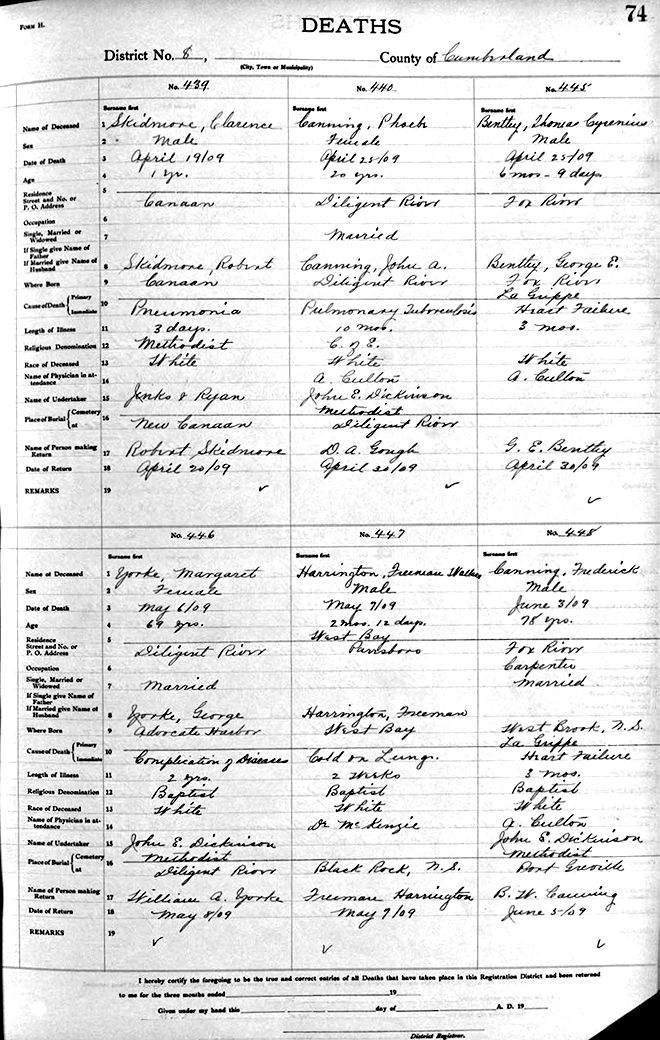 74
FORM H.
DEATHS
District No. 8, County of Cumberland
(City, Town or Municipality)
No. 439 No. 440 No. 445
Surname first Surname first Surname first
Name of Deceased 1 Skidmore, Clarence Canning, Phoebe Bentley, Thomas Cyrenius
Sex 2 Male Female Male
Date of Death 3 April 19/09 April 25/09 April 25/09
Age 4 1 yr. 20 yrs. 6 mos - 9 days
Residence Street and No. or P. O. Address 5 Canaan Diligent River Fox River
Occupation 6
Single, Married or Widowed 7 Married
If Single give Name of Father
If Married give Name of Husband 8 Skidmore, Robert Canning, John A. Bentley, George E.
Where Born 9 Canaan Diligent River Fox River
Cause of Death Primary La Grippe
Immediate 10 Pneumonia Pulmonary Tuberculosis Heart Failure
Length of Illness 11 3 days. 10 mos. 3 mos.
Religious Denomination 12 Methodist C. of E.
Race of Deceased 13 White White White
Name of Physician in attendance 14 A. Culton A. Culton
Name of Undertaker 15 Jenks & Ryan John E. Dickinson
Place of Burial Cemetery Methodist
at 16 New Canaan Diligent River
Name of Person making Return 17 Robert Skidmore D. A. Gough G. E. Bentley
Date of Return 18 April 20/09 April 30/09 April 30/09
REMARKS 19
No. 446 No. 447 No. 448
Surname first Surname first Surname first
Name of Deceased 1 Yorke, Margaret Harrington, Freeman Walker Canning, Frederick
Sex 2 Female Male Male
Date of Death 3 May 6/09 May 7/09 June 3/09
Age 4 69 yrs. 2 mos. 12 days. 78 yrs.
Residence Street and No. or P. O. Address 5 Diligent River West Bay Parrsboro Fox River
Occupation 6 Carpenter
Single, Married or Widowed 7 Married Married
If Single give Name of Father
If Married give Name of Husband 8 Yorke, George Harrington, Freeman
Where Born 9 Advocate Harbor West Bay West Brook, N.S.
Cause of Death Primary La Grippe
Immediate 10 Complication of Diseases Cold on Lungs. Heart Failure
Length of Illness 11 2 yrs. 2 Weeks 3 mos.
Religious Denomination 12 Baptist Baptist Baptist
Race of Deceased 13 White White White
Name of Physician in attendance 14 Dr McKenzie A. Culton
Name of Undertaker 15 John E. Dickinson John E. Dickinson
Place of Burial Cemetery Methodist Methodist
at 16 Diligent River Black Rock, N.S. Port Greville
Name of Person making Return 17 William A. Yorke Freeman Harrington B. W. Canning
Date of Return 18 May 8/09 May 9/09 June 5/09
REMARKS 19
I hereby certify the foregoing to be the true and correct entries of all Deaths that have taken place in this Registration District and been returned
to me for the three months ended 19
Given under my hand this day of A. D. 19
District Registrar.